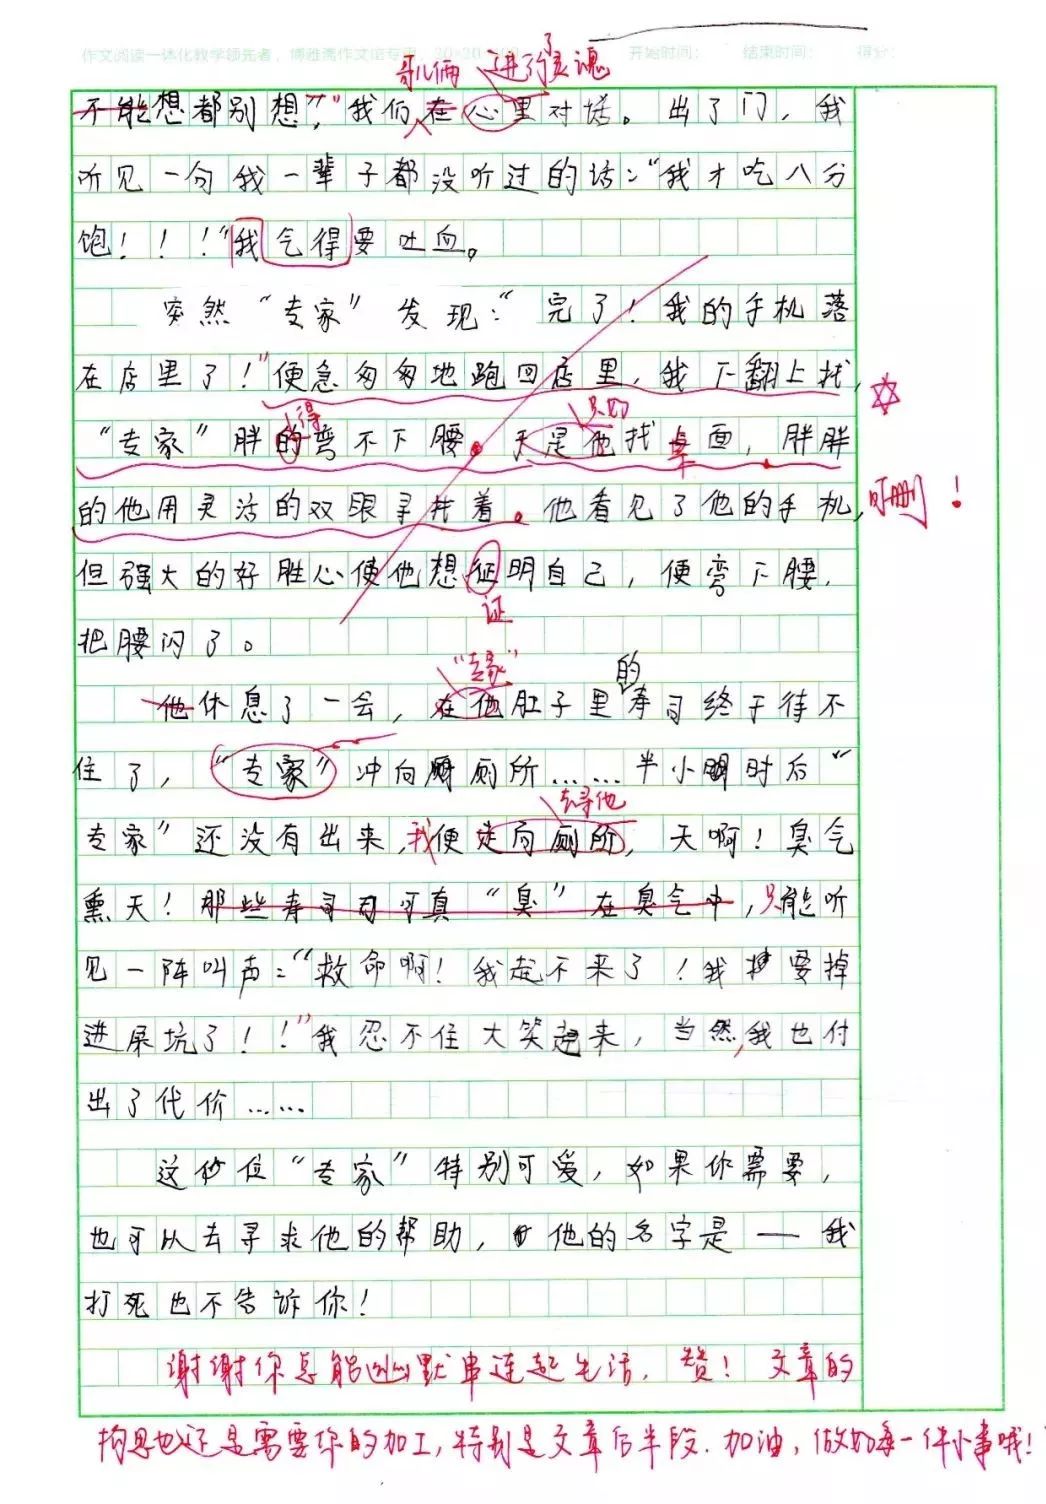 作文阅读一体化教学领先者，博雅斋作文馆专用 20×20 开始时间： 结束时间： 得分：
哥儿俩 进行了灵魂
不能想都别想，”我们在心里对话。出了门，我
听见一句我一辈子都没听过的话：“我才吃八分
饱！！！”我气得要吐血。
突然“专家”发现：“完了！我的手机落
在店里了！”便急匆匆地跑回店里，我下翻上找，
得 只好
“专家”胖的弯不下腰。于是他找桌面，胖胖
的他用灵活的双眼寻找着。他看见了他的手机， 可删！
但强大的好胜心使他想征明自己，便弯下腰，
证
把腰闪了。
“专家” 的
他休息了一会，在他肚子里寿司终于待不
住了，“专家”冲向厕所……半小时后“
寻他
专家”还没有出来，我便走向厕所，天啊！臭气
熏天！那些寿司可真“臭”在臭气中，只能听
见一阵叫声：“救命啊！我起不来了！我要掉
进屎坑了！！”我忍不住大笑起来，当然，我也付
出了代价……
这位“专家”特别可爱，如果你需要，
也可以去寻求他的帮助，他的名字是——我
打死也不告诉你！
谢谢你总能幽默串连起生活，赞！文章的
构思也还是需要你的加工，特别是文章后半段．加油，做好每一件小事哦！